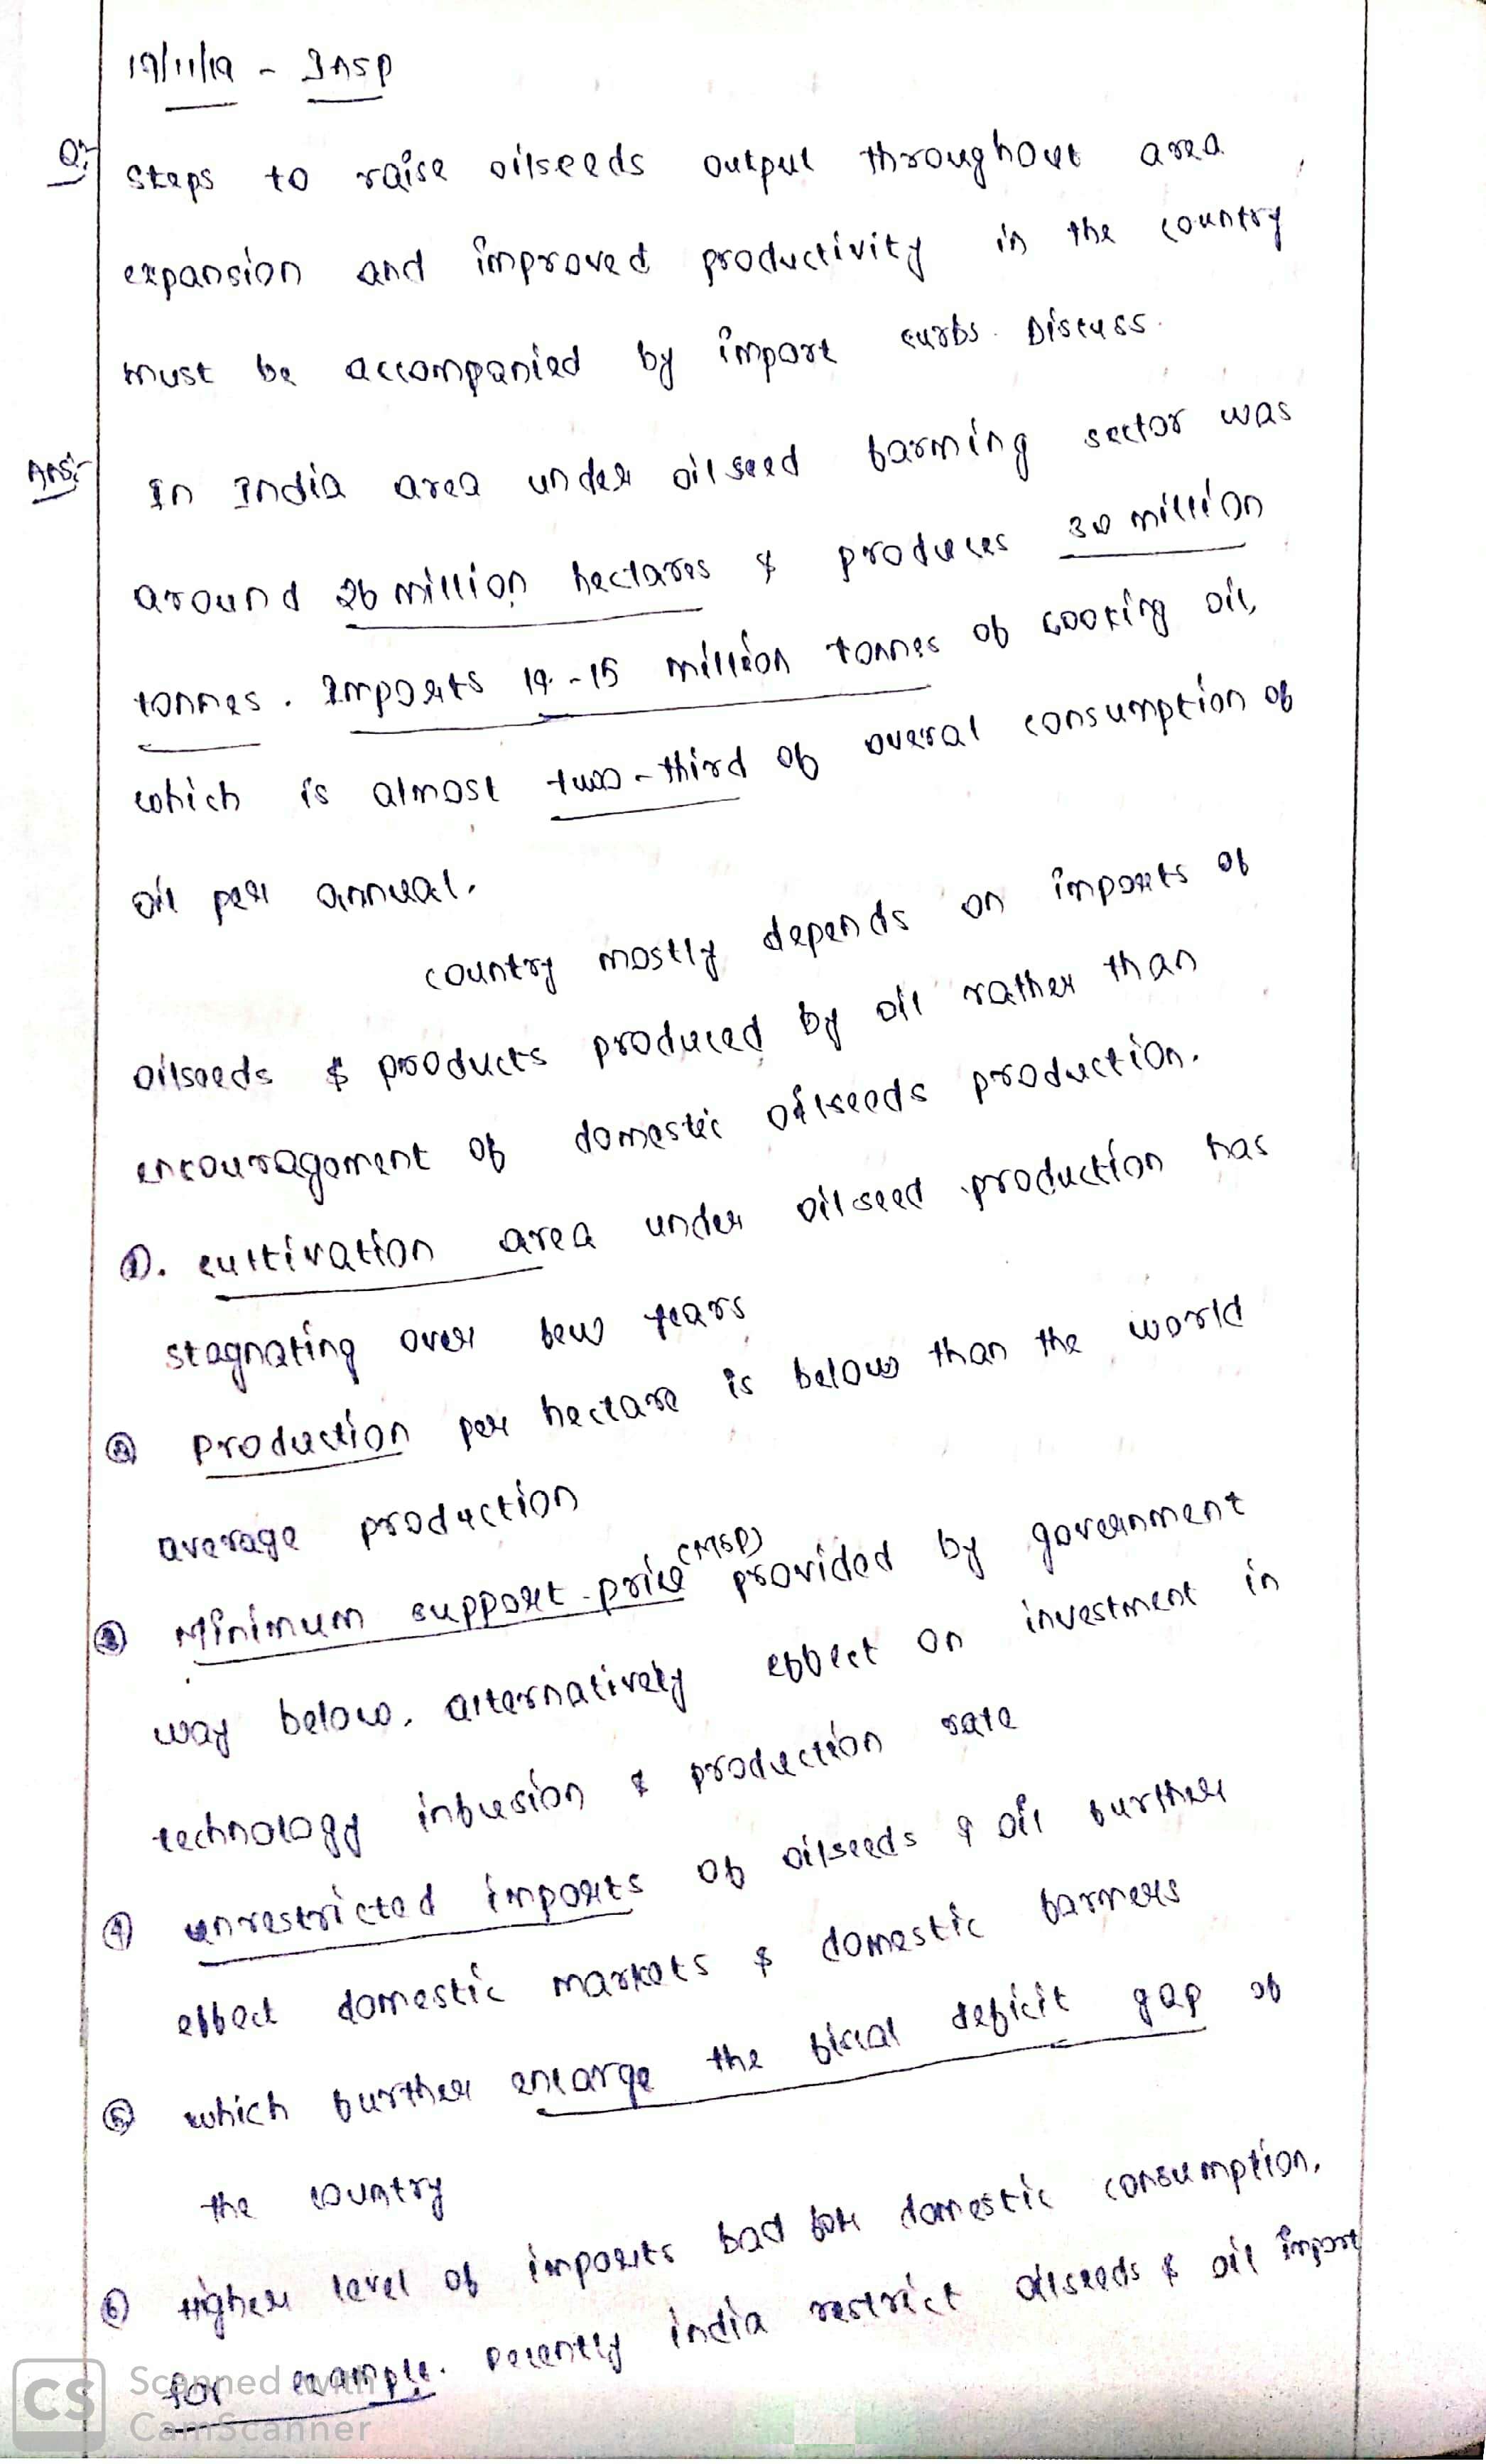 19/11/19 - IASP
Q:- Steps to raise oilseeds output throughout area
expansion and improved productivity in the country
must be accompanied by import curbs. Discuss.
Ans:- In India area under oilseed farming sector was
around 26 million hectares & produces 30 million
tonnes. Imports 14-15 million tonnes of cooking oil,
which is almost two-third of overal consumption of
oil per annual.
country mostly depends on imports of
oilseeds & products produced by oil rather than
encouragement of domestic oilseeds production.
①. cultivation area under oilseed production has
stagnating over few years
② production per hectare is below than the world
average production
③ Minimum support-price (MSP) provided by government
way below, alternatively effect on investment in
technology infusion & production rate
④ unrestricted imports of oilseeds & oil further
effect domestic markets & domestic farmers
⑤ which further enlarge the fiscal deficit gap of
the country
⑥ Higher level of imports bad for domestic consumption.
for example. Recently india restrict oilseeds & oil import
CS Scanned with
CamScanner